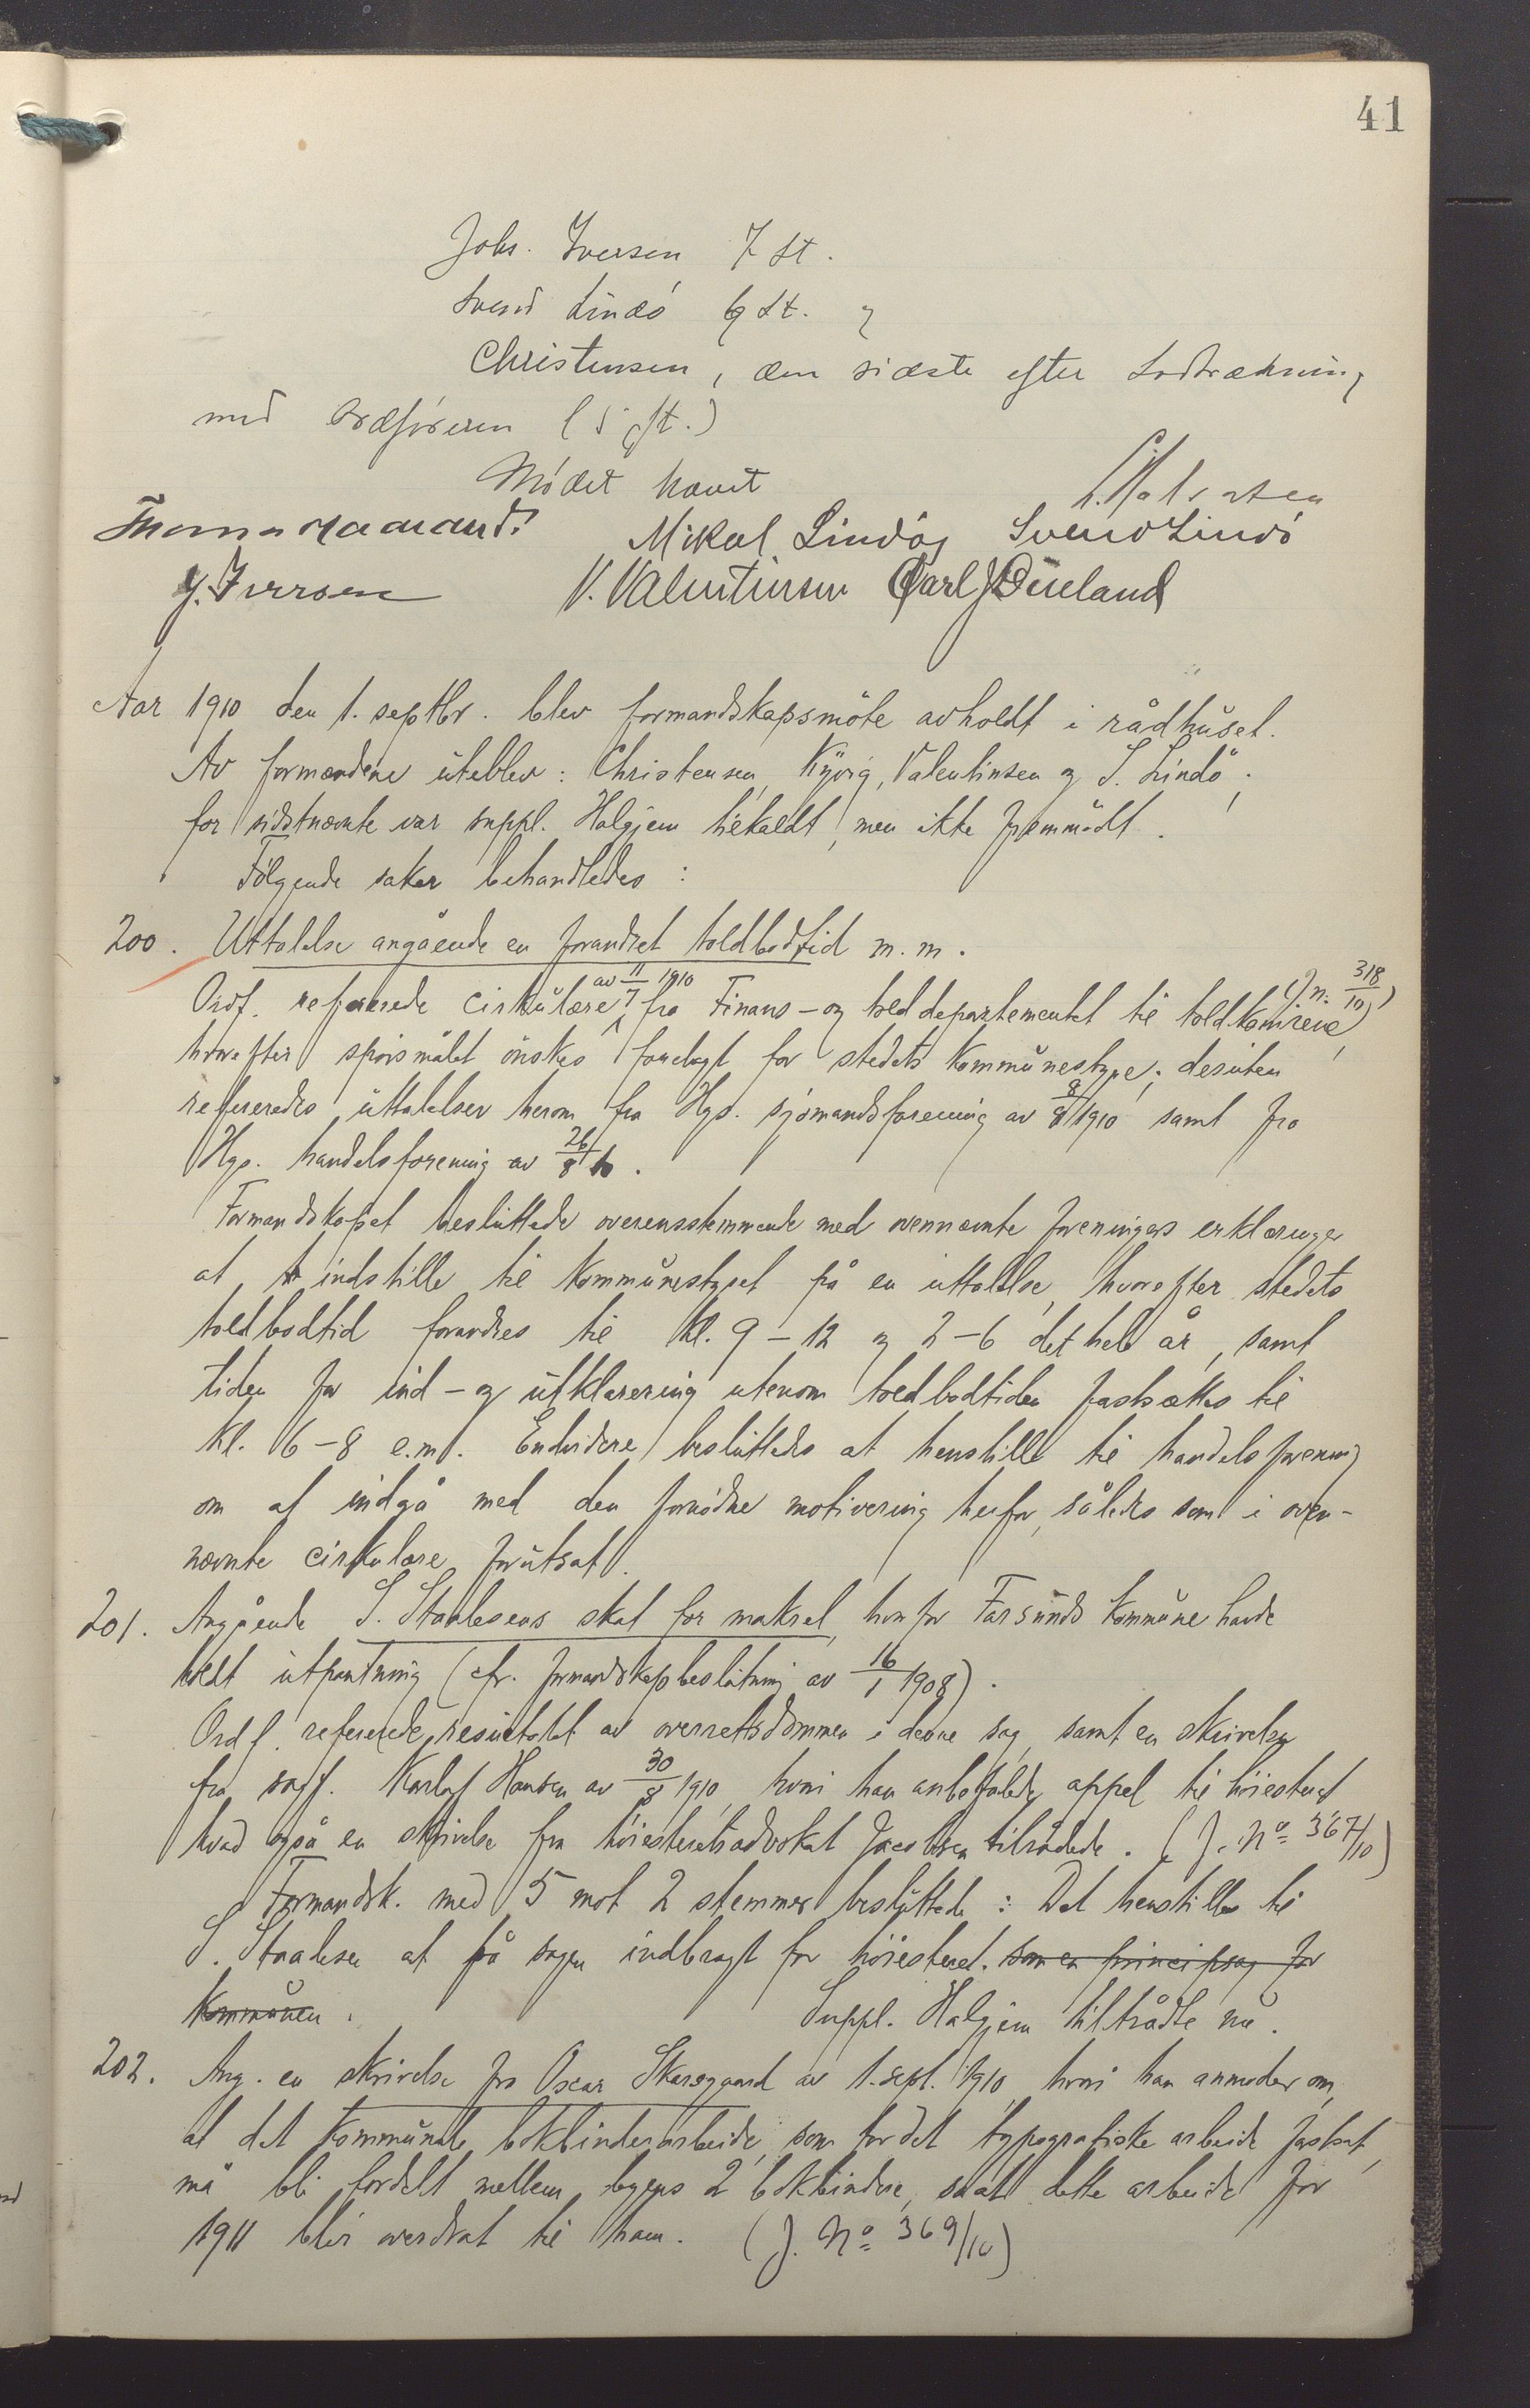 41
Johs. Iversen 7 st.
Svend Lindø 6 st. og
Christensen, den sidste efter Lodtrækning
med Ordføreren (5 st.)
Mødet hævet
Mikal Lindøy Svend Lindö
J. Iversen V. Valentinsen Carl J Dueland
Aar 1910 den 1. septbr. blev formandskapsmöte avholdt i rådhuset.
Av formændene uteblev: Christensen, Kyvig, Valentinsen og S. Lindö;
for sidstnævnte var suppl. Halgjem tilkaldt, men ikke fremmödt.
Fölgende saker behandledes:
200. Uttalelse angående en forandret toldbodtid m.m.
Ordf. refererede cirkulære av 11/7 1910 fra Finans- og tolddepartementet til toldkamrene, (J.n. 318/10)
hvorefter spörsmålet önskes forelagt for stedets kommunestyre; desuten
refereredes uttalelser herom fra Hgs. sjömandsforening av 8/8 1910 samt fra
Hgs. handelsforening av 26/8 10.
Formandskapet besluttede overensstemmende med ovennævnte foreningers erklæringer
at indstille til kommunestyret på en uttalelse, hvorefter stedets
toldbodtid forandres til kl. 9-12 og 2-6 det hele år, samt
tiden for ind- og utklarering utenom toldbodtiden fastsættes til
kl. 6-8 e.m. Endvidere besluttedes at henstille til handelsforening
om at indgå med den fornödne motivering herfor, således som i oven-
nævnte cirkulære forutsat.
201. Angående S. Staalesens skat for makrel, hvorfor Farsunds kommune havde
holdt utpantning (cfr. formandskapsbeslutning av 16/1 1908).
Ordf. refererede resultatet av overretsdommen i denne sag, samt en skrivelse
fra sagf. Karlof Hansen av 30/8 1910, hvori han anbefalede appel til höiesteret
hvad også en skrivelse fra höiesteretsadvokat Jacobsen tilrådede. (J. No 367/10)
Formandsk. med 5 mot 2 stemmer besluttede: Det henstilles til
S. Staalesen at få sagen indbragt for höiesteret. som en principsag for
kommunen. Suppl. Halgjem tiltrådte nu.
202. Ang. en skrivelse fra Oscar Skaregaard av 1. sept. 1910, hvori han anmoder om,
at det kommunale bokbinderarbeide, som for det typografiske arbeide fastsat,
må bli fordelt mellem byens 2 bokbindere, så at dette arbeide for
1911 blir overdrat til ham. (J. No 369/10)